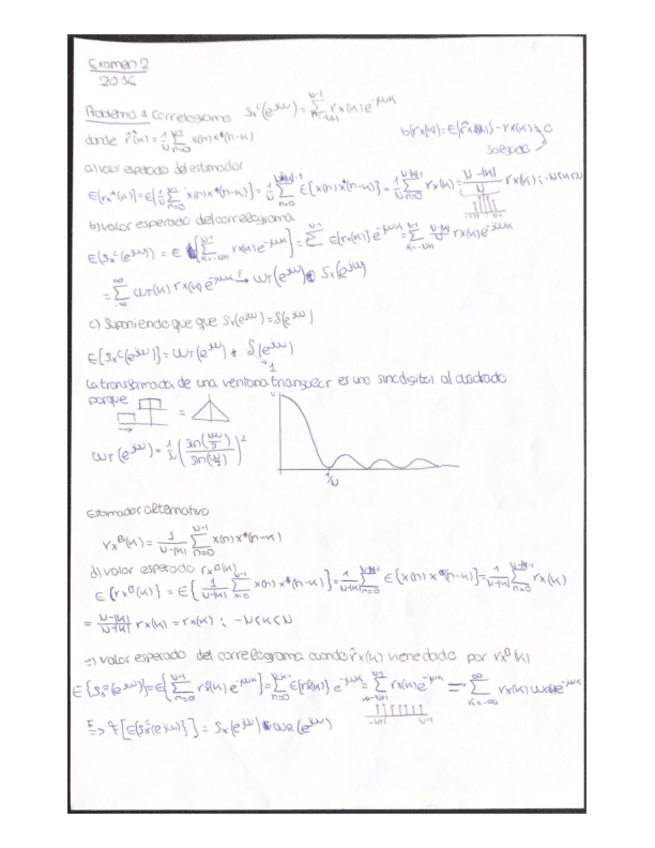 Examen 2
2016
Problema 1 Correlograma Sx^c(e^jω) = Σ_{n=-N+1}^{N-1} rx(k) e^-jωk
donde r̂(k) = 1/N Σ_{n=0}^{N-1} x(n) x*(n-k)
b(rx(k)) = E{r̂x(k)} - rx(k) ≠ 0
sesgado
a) valor esperado del estimador
E{rx^(k)} = E{1/N Σ_{n=0}^{N-1} x(n) x*(n-k)} = 1/N Σ_{n=0}^{N-|k|-1} E{x(n) x*(n-k)} = 1/N Σ_{n=0}^{N-|k|-1} rx(k) = (N-|k|)/N rx(k) ; -N<k<N
-N+1 N-1
b) valor esperado del correlograma
E{Sx^c(e^jω)} = E{Σ_{k=-N+1}^{N-1} rx(k) e^-jωk} = Σ^{N-1} E{rx(k)} e^-jωk = Σ_{k=-N+1}^{N-1} (N-|k|)/N rx(k) e^-jωk
= Σ_{-∞}^{∞} ωT(k) rx(k) e^-jωk →F ωT(e^jω) * Sx(e^jω)
c) Suponiendo que que Sx(e^jω) = δ(e^jω)
E{Sx^c(e^jω)} = ωT(e^jω) * δ(e^jω)
→1
La transformada de una ventana triangular es una sinc digital al cuadrado
porque
=
N
ωT(e^jω) = 1/N (sin(Nω/2) / sin(ω/2))^2
1/N
Estimador alternativo
rx^B(k) = 1/(N-|k|) Σ_{n=0}^{N-1} x(n) x*(n-k)
d) valor esperado rx^B(k)
E{rx^B(k)} = E{1/(N-|k|) Σ_{n=0}^{N-1} x(n) x*(n-k)} = 1/(N-|k|) Σ_{n=0}^{N-|k|-1} E{x(n) x*(n-k)} = 1/(N-|k|) Σ_{n=0}^{N-|k|-1} rx(k)
= (N-|k|)/(N-|k|) rx(k) = rx(k) ; -N<k<N
e) valor esperado del correlograma cuando r̂x(k) viene dado por rx^B(k)
E{Sx^c(e^jω)} = E{Σ_{n=0}^{N-1} rx^B(k) e^-jωk} = Σ_{n=0}^{N-1} E{rx^B(k)} e^-jωk = Σ_{k=-N+1}^{N-1} rx(k) e^-jωk = Σ_{k=-∞}^{∞} rx(k) ωR(k) e^-jωk
-N+1 N-1
F=> F[E{Sx^c(e^jω)}] = Sx(e^jω) * ωR(e^jω)